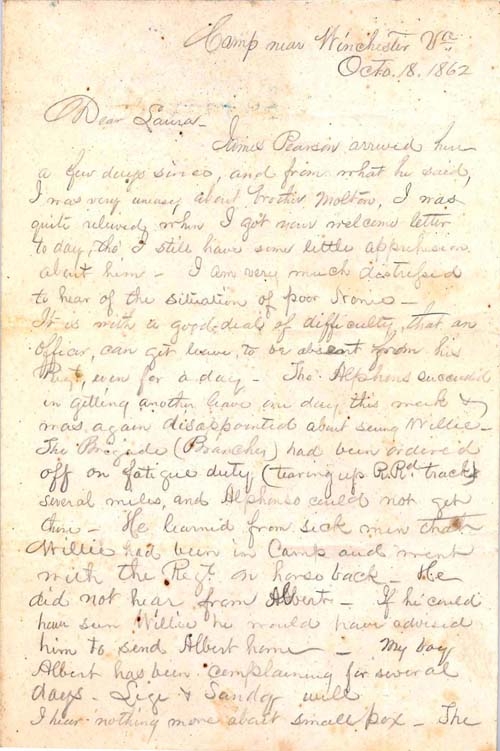 Camp near Winchester Va
Octo. 18. 1862
Dear Laura -
James Pearson arrived here
a few days since, and from what he said,
I was very uneasy about brother Molton, I was
quite relieved, when I got your welcome letter
to day, tho' I still have some little apprehension
about him - I am very much distressed
to hear of the situation of poor Nonie -
It is with a good deal of difficulty, that an
officer, can get leave, to be absent from his
Regt, even for a day - Tho. Alphonso succeeded
in getting another leave one day this week &
was again disappointed about seeing Willie -
The Brigade (Branches) had been ordered
off on fatigue duty (tearing up R.Rd track)
several miles, and Alphonso could not get
there - He learned from sick men that
Willie had been in Camp and went
with the Regt. on horse back - He
did not hear from Albert - If he could
have seen Willie he would have advised
him to send Albert home - My boy
Albert has been complaining for several
days - Lige & Sandy well
I hear nothing more about small pox - The